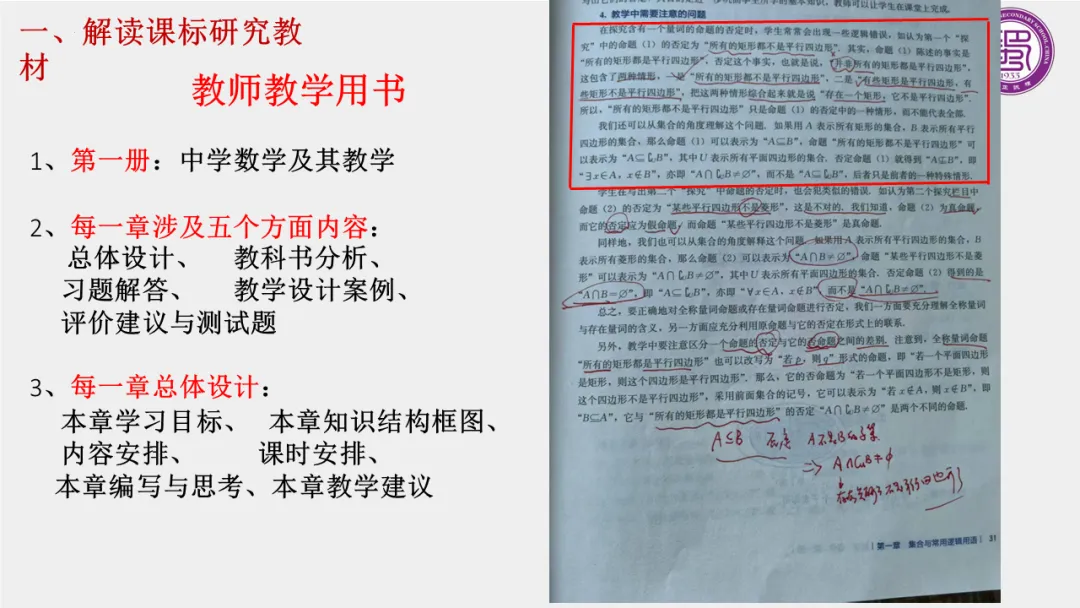 一、解读课标研究教
材
教师教学用书
1、第一册：中学数学及其教学
2、每一章涉及五个方面内容：
总体设计、 教科书分析、
习题解答、 教学设计案例、
评价建议与测试题
3、每一章总体设计：
本章学习目标、 本章知识结构框图、
内容安排、 课时安排、
本章编写与思考、本章教学建议
4. 教学中需要注意的问题
在探究含有一个量词的命题的否定时，学生常常会出现一些逻辑错误，如认为第一个“探
究”中的命题（1）的否定为“所有的矩形都不是平行四边形”. 其实，命题（1）陈述的事实是
“所有的矩形都是平行四边形”，否定这个事实，也就是说，“并非所有的矩形都是平行四边形”，
这包含了两种情形，一是“所有的矩形都不是平行四边形”，二是“有些矩形是平行四边形，有
些矩形不是平行四边形”，把这两种情形综合起来就是说“存在一个矩形，它不是平行四边形”.
所以，“所有的矩形都不是平行四边形”只是命题（1）的否定中的一种情形，而不能代表全部.
我们还可以从集合的角度理解这个问题. 如果用 A 表示所有矩形的集合，B 表示所有平行
四边形的集合，那么命题（1）可以表示为“A⊆B”，命题“所有的矩形都不是平行四边形”可
以表示为“A⊆∁UB”，其中 U 表示所有平面四边形的集合. 否定命题（1）就得到“A⊈B”，即
“∃x∈A，x∉B”，亦即“A∩∁UB≠∅”，而不是“A⊆∁UB”，后者只是前者的一种特殊情形.
学生在写出第二个“探究”中命题的否定时，也会犯类似的错误. 如认为第二个探究栏目中
命题（2）的否定为“某些平行四边形不是菱形”，这是不对的. 我们知道，命题（2）为真命题，
而它的否定应为假命题，而命题“某些平行四边形不是菱形”是真命题.
同样地，我们也可以从集合的角度解释这个问题. 如果用 A 表示所有平行四边形的集合，B
表示所有菱形的集合，那么命题（2）可以表示为“A∩B≠∅”，命题“某些平行四边形不是菱
形”可以表示为“A∩∁UB≠∅”，其中 U 表示所有平面四边形的集合. 否定命题（2）得到的是
“A∩B=∅”，即“A⊆∁UB”，亦即“∀x∈A，x∉B”，而不是“A∩∁UB≠∅”.
总之，要正确地对全称量词命题或存在量词命题进行否定，我们一方面要充分理解全称量词
与存在量词的含义，另一方面应充分利用原命题与它的否定在形式上的联系.
另外，教学中要注意区分一个命题的否定与它的否命题之间的差别. 注意到，全称量词命题
“所有的矩形都是平行四边形”也可以改写为“若 p，则 q”形式的命题，即“若一个平面四边形
是矩形，则这个四边形是平行四边形”. 那么，它的否命题为“若一个平面四边形不是矩形，则
这个四边形不是平行四边形”，采用前面集合的记号，它可以表示为“若 x∉A，则 x∉B”，即
“B⊆A”，它与“所有的矩形都是平行四边形”的否定“A∩∁UB≠∅”是两个不同的命题.
A⊆B 否定 A不是B的子集
⇒ A∩∁UB≠∅
第一章 集合与常用逻辑用语 31
1933